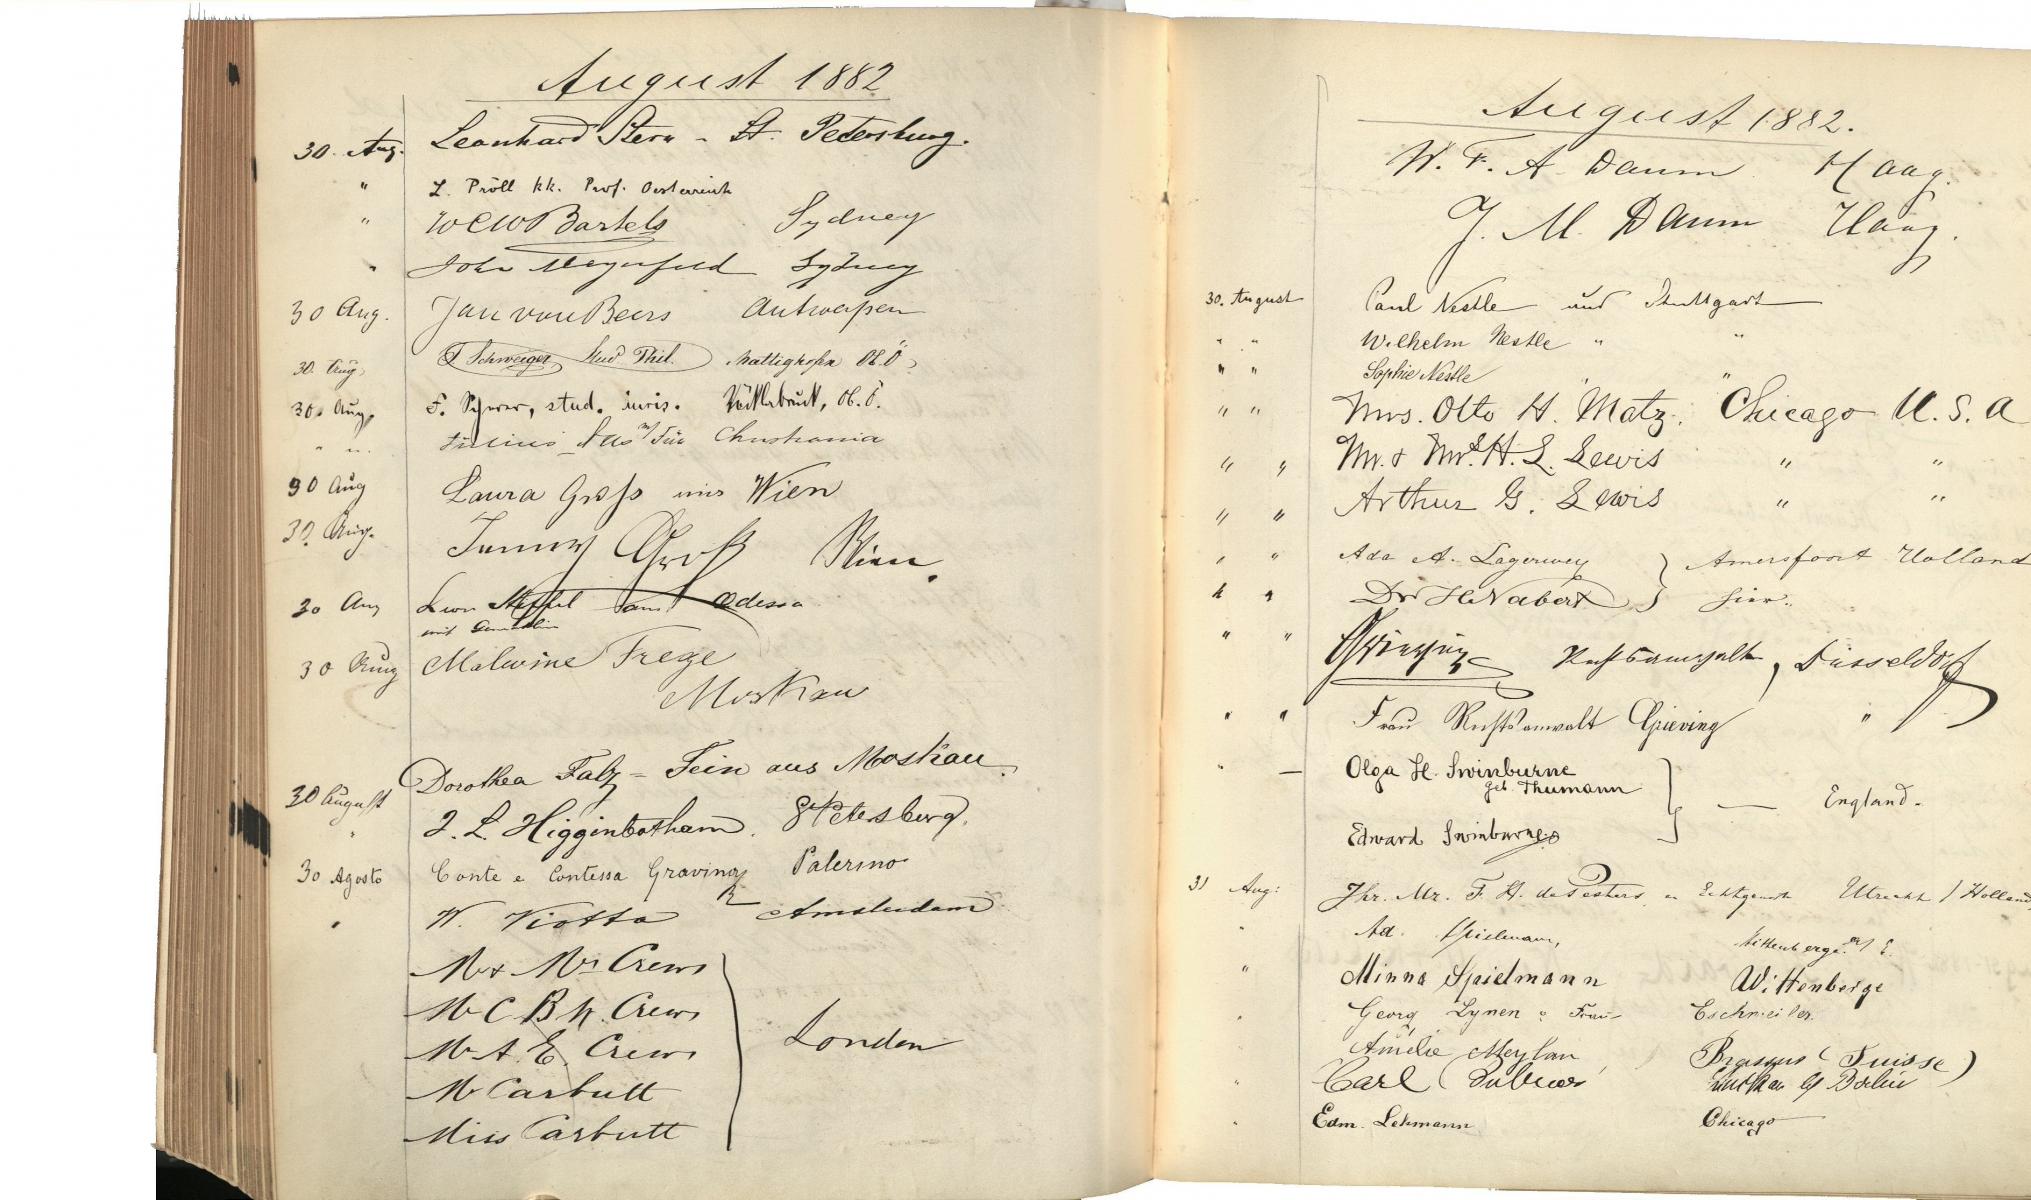 August 1882
30. Aug. Leonhard Stern - St. Petersburg.
" L. Pröll kk. Prof. Oesterreich
" W C W Bartels Sydney
" John Meyerfeld Sydney
30 Aug. Jan van Beers Antwerpen
30. Aug. Schweiger Stud. Phil. Mattighofen Ob.Ö
30. Aug. F. stud. iuris. Vöcklabruck, Ob. Ö.
" " Julius Christiania
30 Aug Laura Groß aus Wien
30. Aug. Groß Wien.
30 Aug Leon aus Odessa
mit Gemahlin
30 Aug Malwine Frege
Moskau
30 August Dorothea Falz-Fein aus Moskau.
" J. L. Higginbotham. St Petersburg.
30 Agosto Conte e Contessa Gravina Palermo
" W. Viotta Amsterdam
Mr & Mrs Crews
Mr C B N. Crews
Mr A. E. Crews London
Mr Carbutt
Miss Carbutt
August 1882.
W. F. A. Daum Haag.
J. M. Daum Haag.
30. August Paul Nestle und Stuttgart
" " Wilhelm Nestle " "
" " Sophie Nestle "
" " Mrs. Otto H. Matz. Chicago U.S.A
" " Mr. & Mrs. H. L. Lewis " "
" " Arthur G. Lewis " "
" " Ada A. Lagerwey } Amersfoort Holland
" " Dr H Nabert } hier.
" " Grieving Rechtsanwalt, Düsseldorf
" " Frau Rechtsanwalt Grieving "
" — Olga H. Swinburne
geb. Thumann } — England.
Edward Swinburne
31 Aug: Jhr. Mr. F. H. de Pesters en Echtgenote Utrecht / Holland
" Ad. Spielmann, Wittenberge a/E.
" Minna Spielmann Wittenberge
" Georg Lynen & Frau Eschweiler.
" Amélie Meylan Brassus (Suisse)
" Carl b/ Berlin
" Edm. Lehmann Chicago